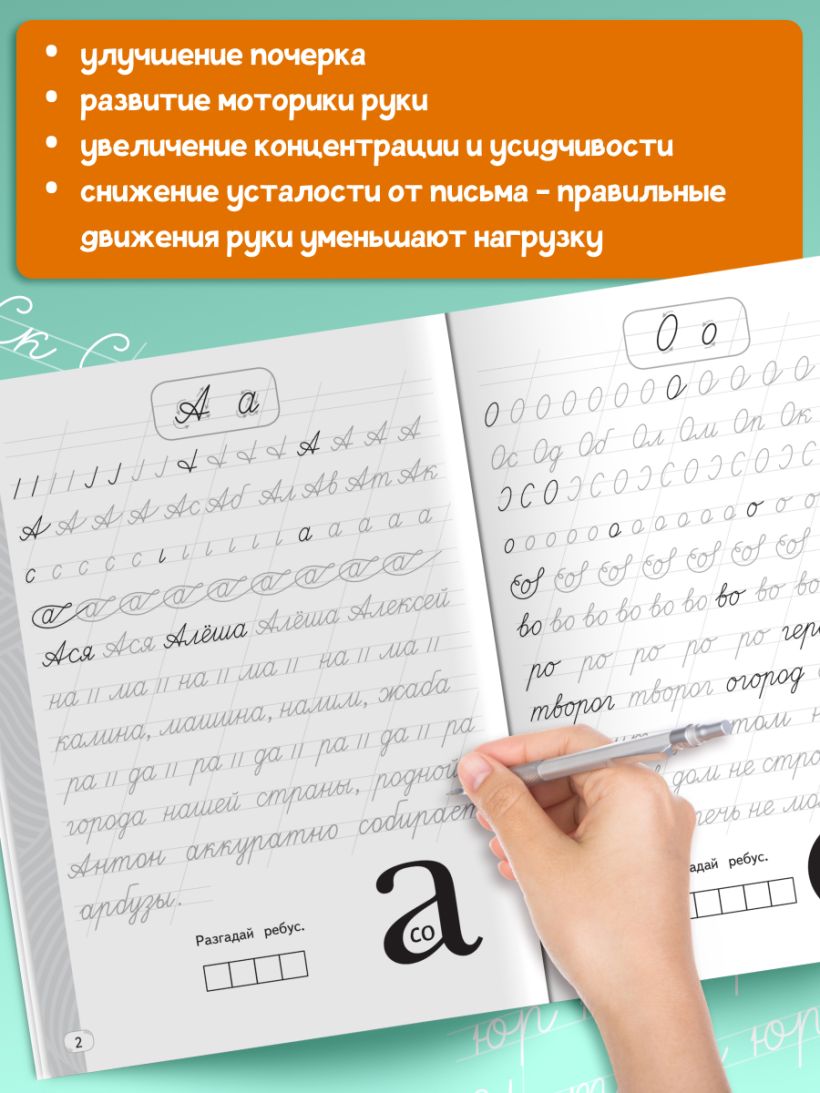 улучшение почерка
развитие моторики руки
увеличение концентрации и усидчивости
снижение усталости от письма – правильные
движения руки уменьшают нагрузку
А а
А А А А
А А А А Ас Аб Ал Ав Ат Ак
с с с с с а а а а а
а а а а а а а а а
Ася Ася Алёша Алёша Алексей
на // ма // на // ма // на // ма //
калина, машина, налим, жаба
ра // да // ра // да // ра // да // ра
города нашей страны, родной
Антон аккуратно собирает
арбузы.
Разгадай ребус.
а
со
2
О о
О О О О О О О О О О О О О
Ос Од Об Ол Ом Оп Ок
о о о о о о о о о о о о о
во во во во во во во во во
ро ро ро ро ро
творог творог огород
том
дом не
печь не
ребус.
юр
юр